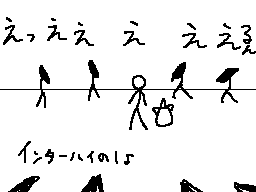 えっええ え ええ
インターハイのしょ